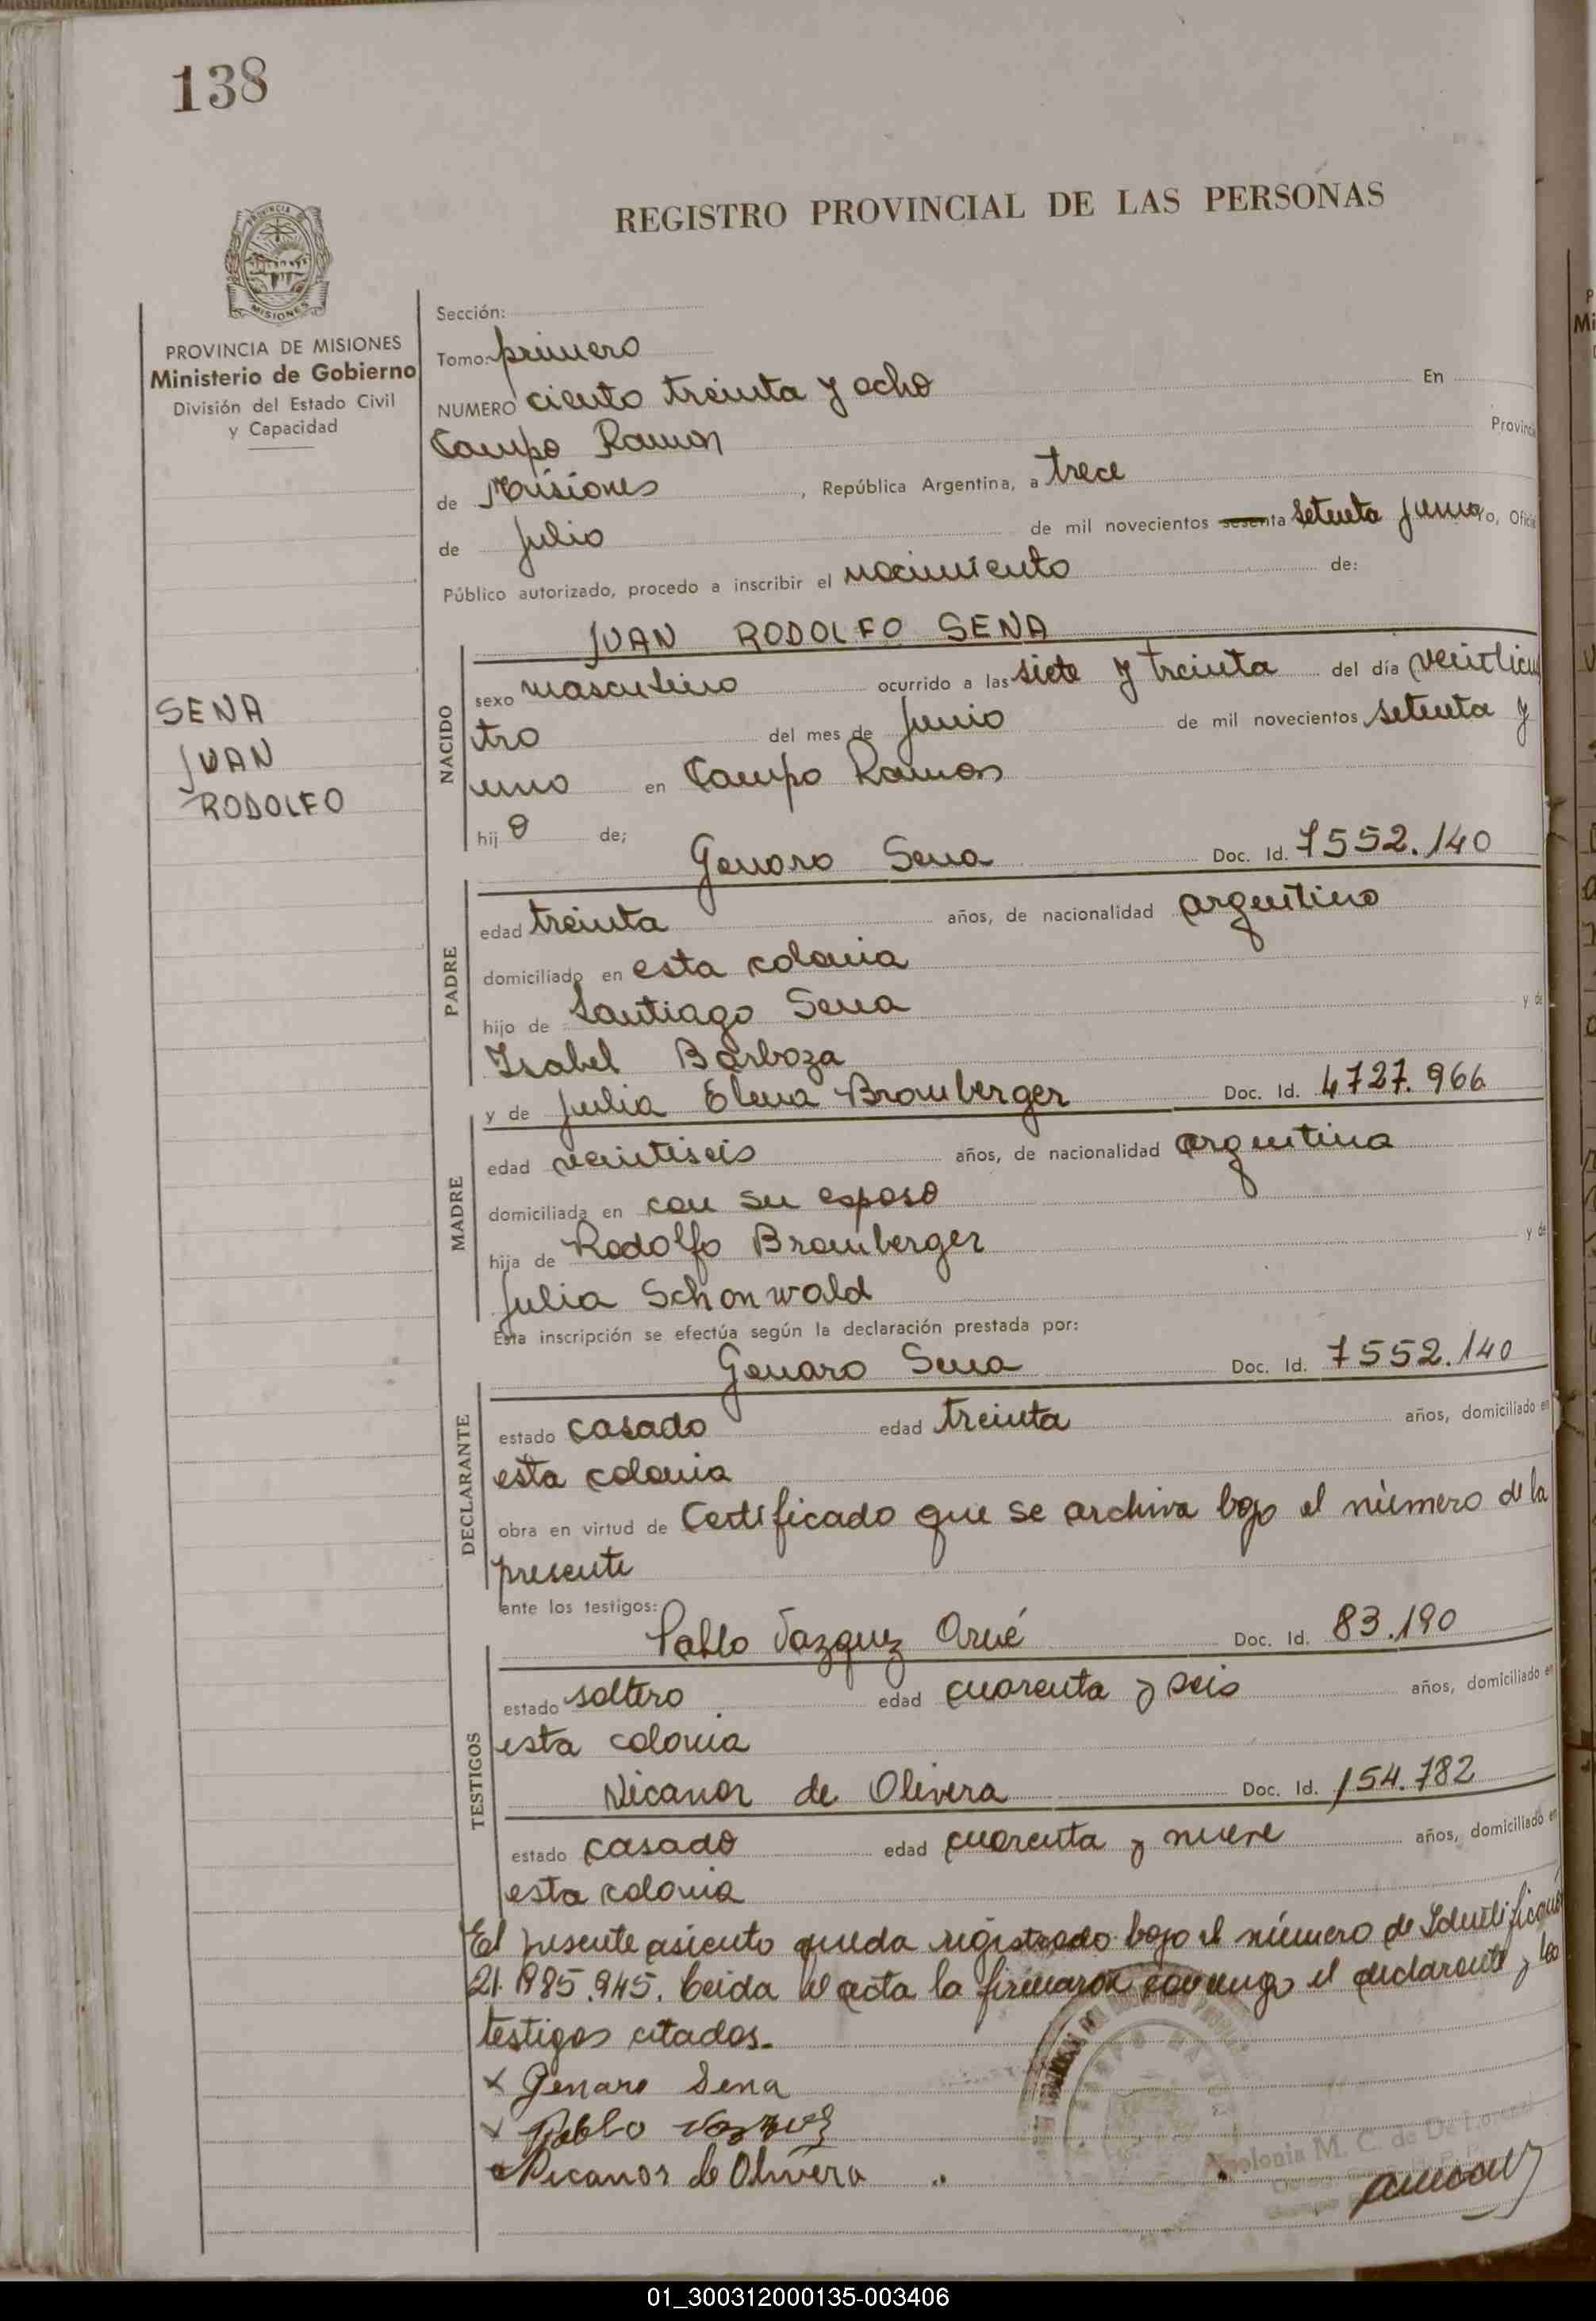 138
REGISTRO PROVINCIAL DE LAS PERSONAS
PROVINCIA DE
MISIONES
PROVINCIA DE MISIONES
Ministerio de Gobierno
División del Estado Civil
y Capacidad
SENA
JUAN
RODOLFO
Sección:
Tomo: primero
NUMERO ciento treinta y ocho En
Campo Ramon Provincia
de Misiones , República Argentina, a trece
de Julio de mil novecientos sesenta setenta y uno yo, Oficial
Público autorizado, procedo a inscribir el nacimiento de:
JUAN RODOLFO SENA
NACIDO
sexo masculino ocurrido a las siete y treinta del día veinticua
tro del mes de junio de mil novecientos setenta y
uno en Campo Ramon
hij o de;
Genaro Sena Doc. Id. 7552.140
PADRE
edad treinta años, de nacionalidad argentino
domiciliado en esta colonia
hijo de Santiago Sena y de
Isabel Barboza
y de Julia Elena Bromberger Doc. Id. 4727.966
MADRE
edad veintiseis años, de nacionalidad argentina
domiciliada en con su esposo
hija de Rodolfo Bromberger y de
Julia Schonwald
Esta inscripción se efectúa según la declaración prestada por:
Genaro Sena Doc. Id. 7552.140
DECLARANTE
estado casado edad treinta años, domiciliado en
esta colonia
obra en virtud de Certificado que se archiva bajo el número de la
presente
ante los testigos:
Pablo Vazquez Doc. Id. 83.190
TESTIGOS
estado soltero edad cuarenta y seis años, domiciliado en
esta colonia
Nicanor de Olivera Doc. Id. 154.782
estado casado edad cuarenta y nueve años, domiciliado en
esta colonia
El presente asiento queda registrado bajo el número de
21.985.945. Leida el acta la firmaron conmigo el declarante y los
testigos citados.
x Genaro Sena
x Pablo Vazquez
Nicanor de Olivera
Apolonia M. C. de De Lorenzi
01_300312000135-003406